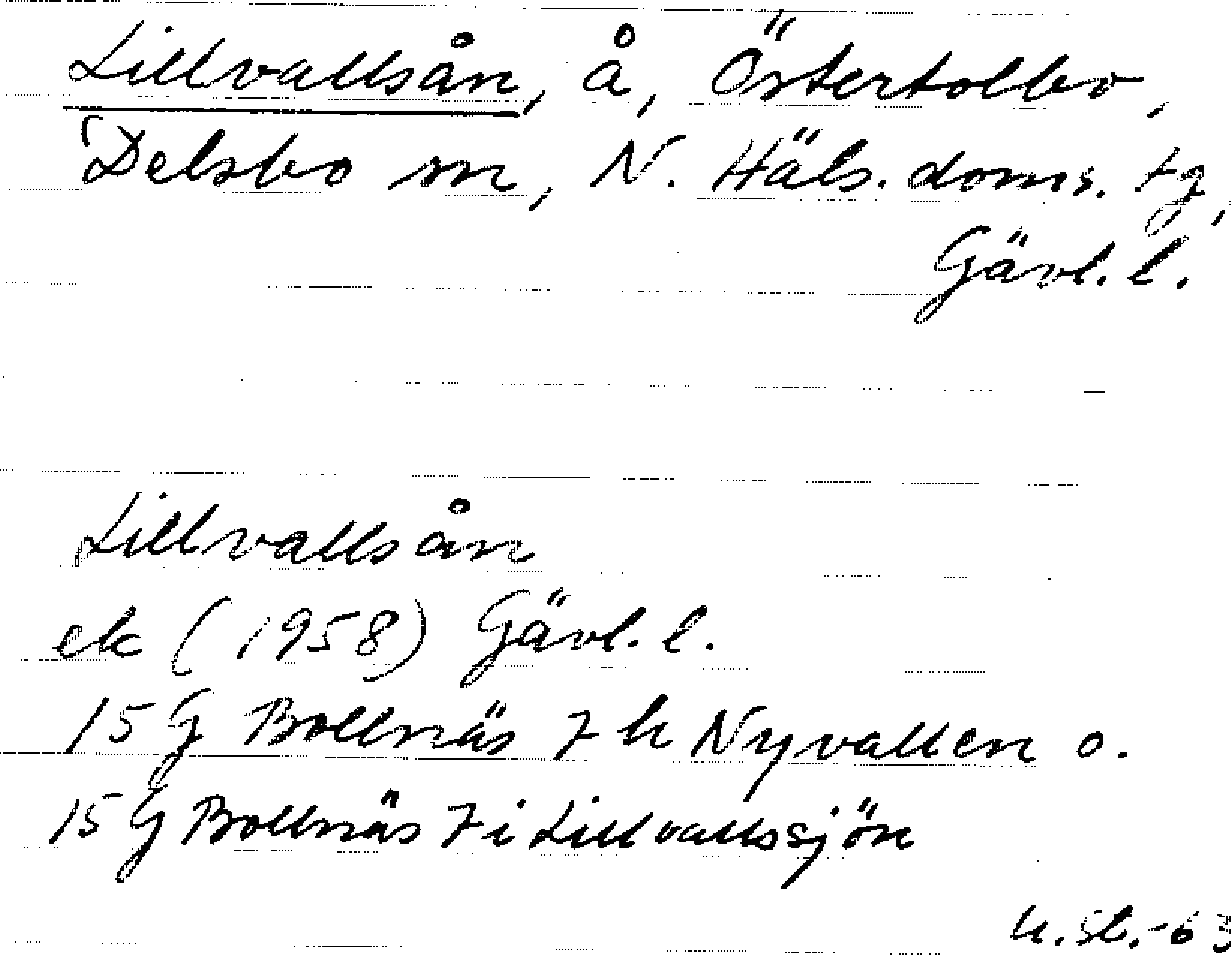 Lillvallsån, å, Östertolbo,
Delsbo sn, N. Häls. doms. tg,
Gävl. l.
Lillvallsån
ek (1958) Gävl. l.
15 G Bollnäs 7 h Nyvallen o.
15 G Bollnäs 7 i Lillvallssjön
U. St. -63